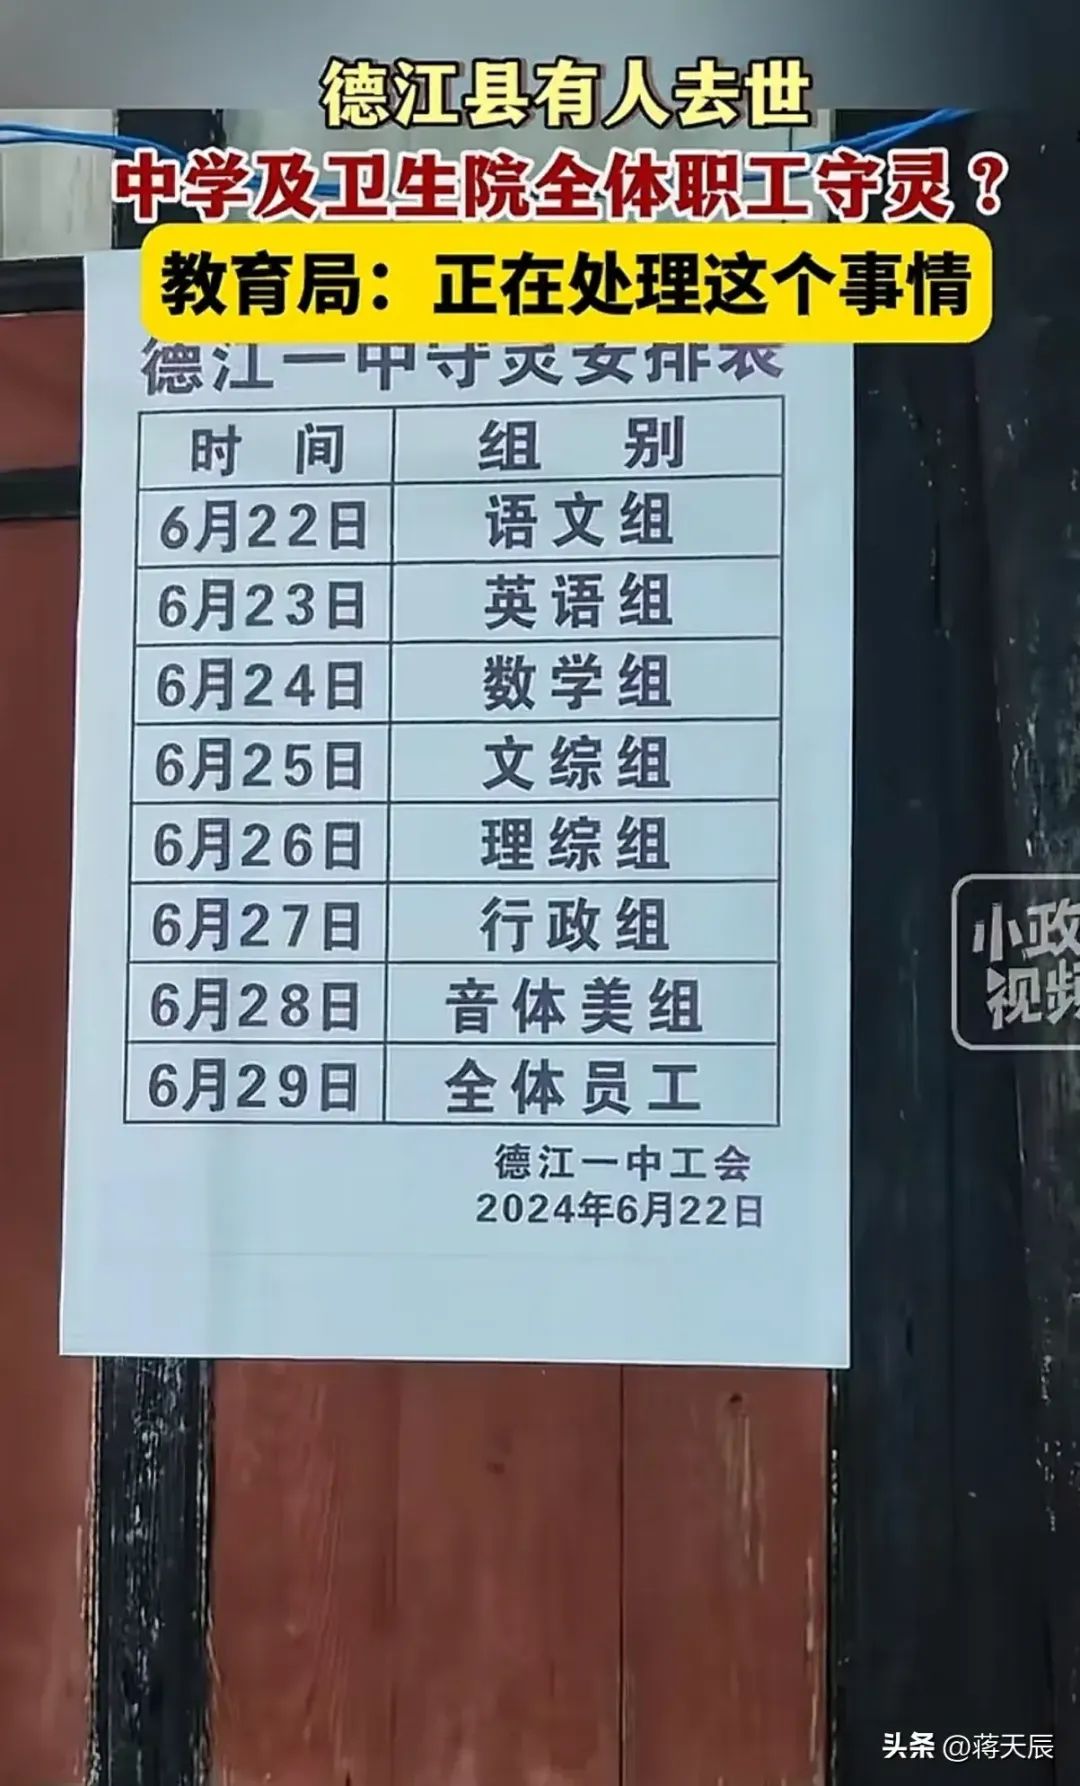 德江县有人去世
中学及卫生院全体职工守灵？
教育局：正在处理这个事情
德江一中守灵安排表
时 间 组 别
6月22日 语文组
6月23日 英语组
6月24日 数学组
6月25日 文综组
6月26日 理综组
6月27日 行政组
6月28日 音体美组
6月29日 全体员工
德江一中工会
2024年6月22日
小政
视频
头条 @蒋天辰